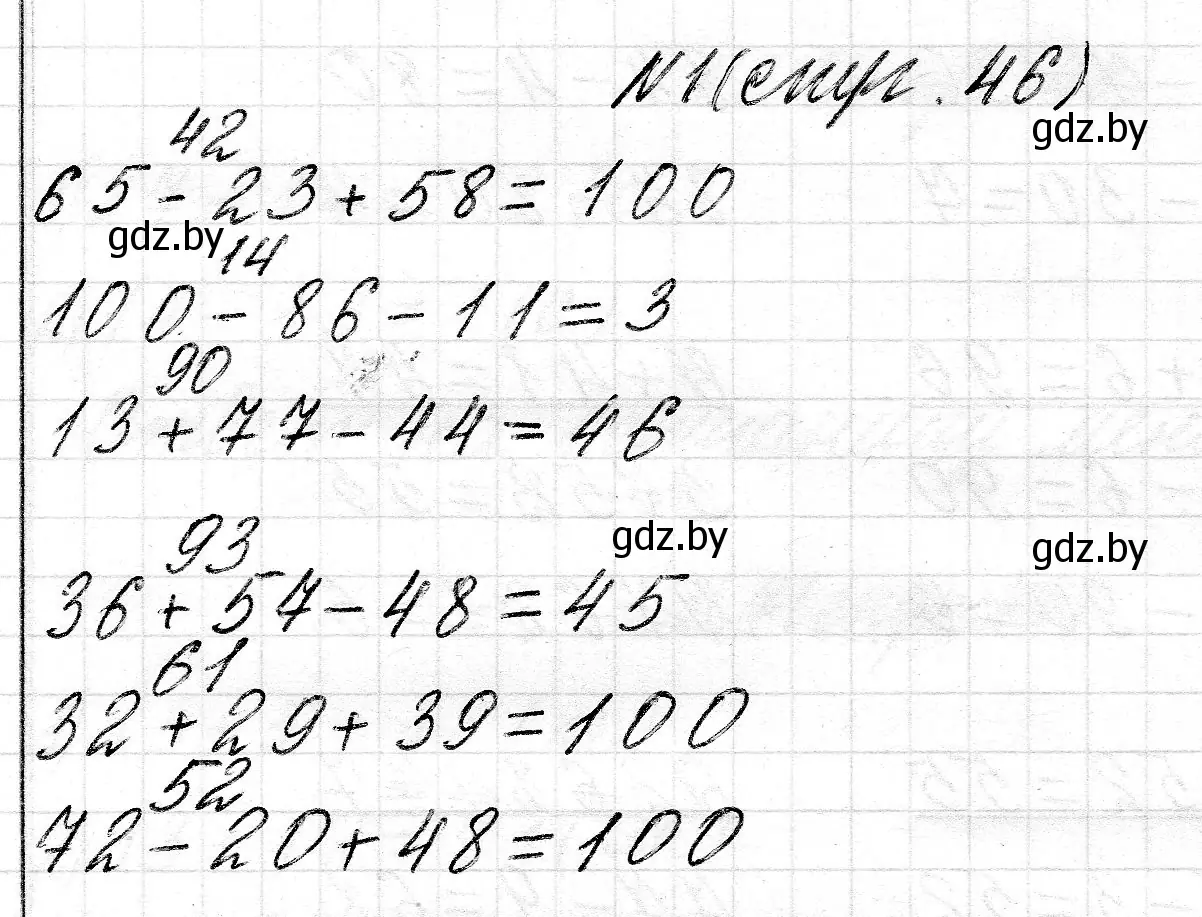 №1 (стр. 46)
gdz.by
42
65 - 23 + 58 = 100
gdz.by
14
100 - 86 - 11 = 3
90
13 + 77 - 44 = 46
93
gdz.by
gdz.by
36 + 57 - 48 = 45
61
32 + 29 + 39 = 100
52
72 - 20 + 48 = 100